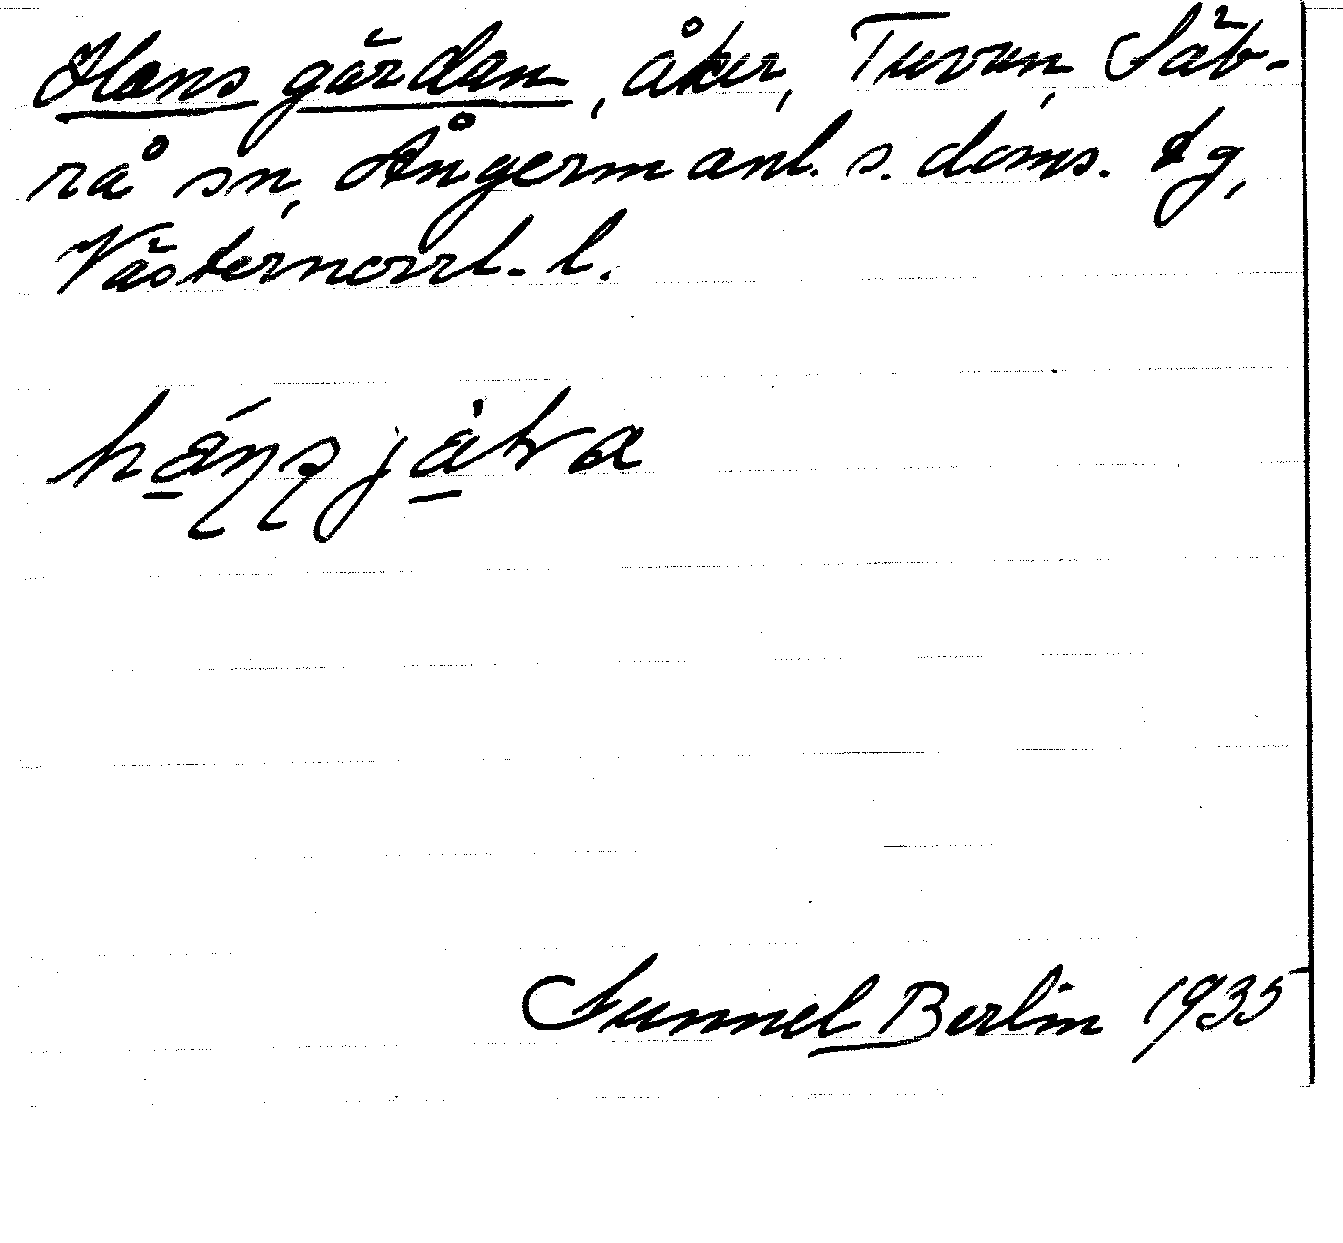 Hans gärdan, åker, Tuvan, Säb-
rå sn, Ångermanl. s. doms. tg,
Västernorrl. l.
Gunnel Berlin 1935